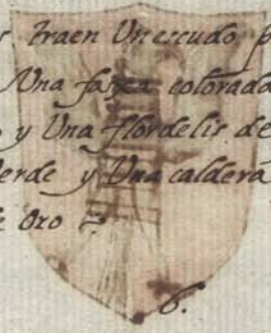 traen Un escudo p
Una faxa colorada
y Una flor de lis de
Verde y Una caldera
de Oro
6.